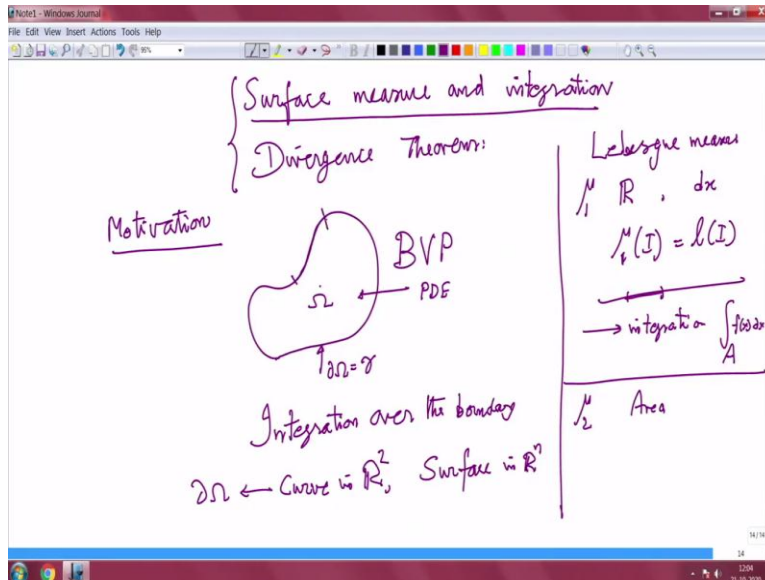 Note1 - Windows Journal
File Edit View Insert Actions Tools Help
95%
Surface measure and integration
Divergence Theorem:
Motivation
BVP
PDE
Ω
∂Ω = γ
Integration over the boundary
∂Ω ← Curve in ℝ², Surface in ℝⁿ
Lebesgue measure
μ₁ ℝ, dx
μ₁(I) = l(I)
→ integration ∫_A f(x) dx
μ₂ Area
14/14
14
12:04